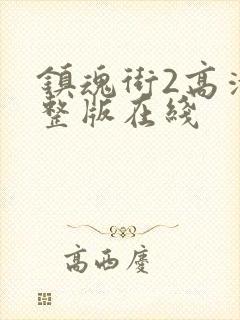 鎮魂街2高清
整版在綫
高西慶